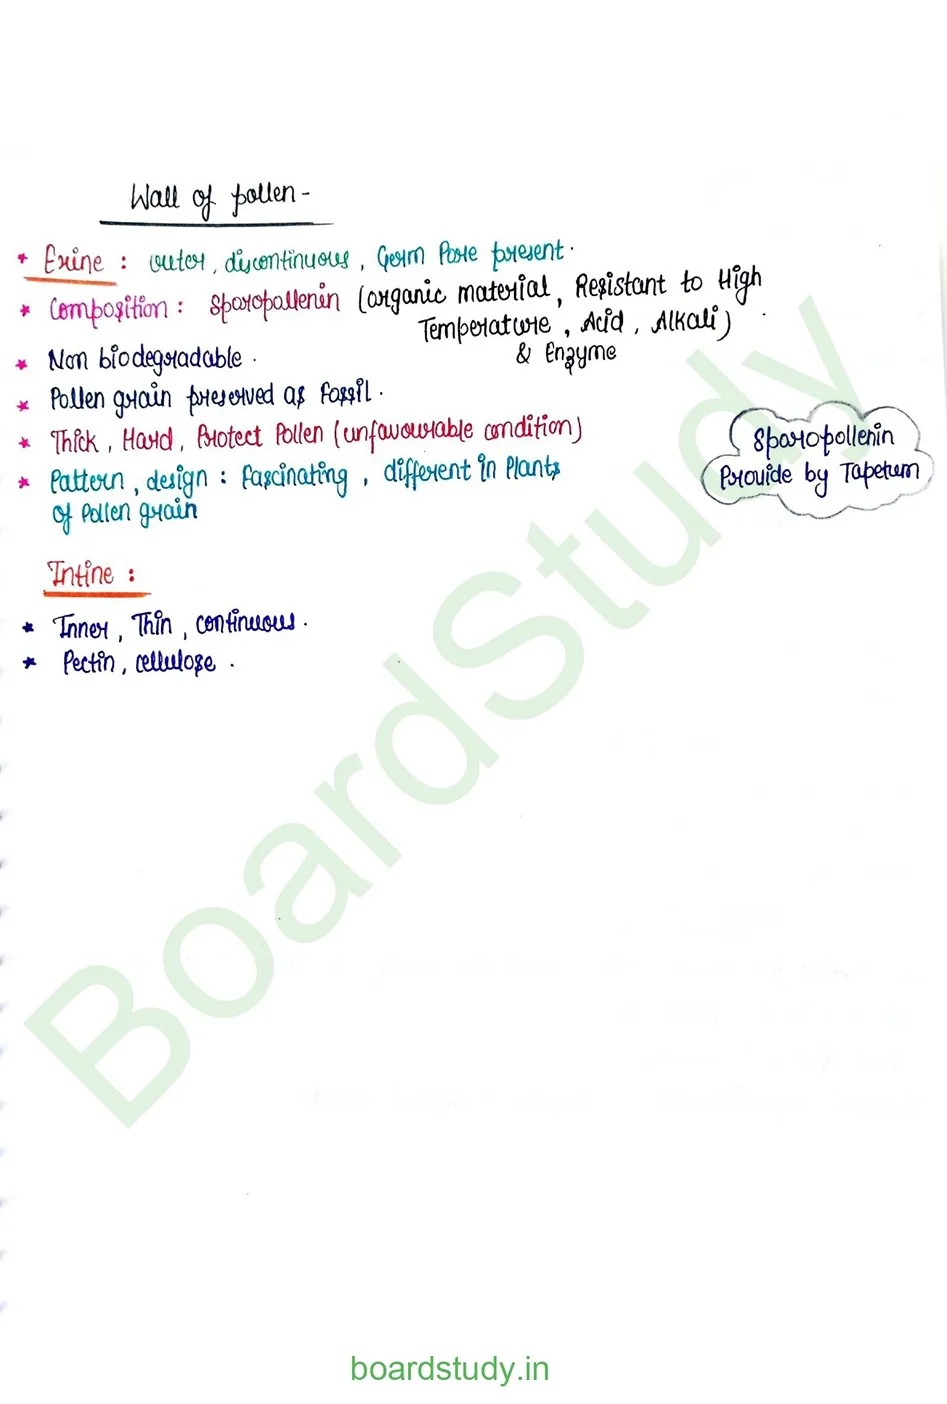 Wall of pollen -
* Exine : outer, discontinuous, Germ Pore present.
* Composition : Sporopollenin (organic material, Resistant to High
Temperature, Acid, Alkali)
& Enzyme
* Non biodegradable.
* Pollen grain preserved as fossil.
* Thick, Hard, Protect Pollen (unfavourable condition)
* Pattern, design : fascinating, different in Plants
of Pollen grain
Sporopollenin
Provide by Tapetum
Intine :
* Inner, Thin, continuous.
* Pectin, cellulose.
BoardStudy
boardstudy.in